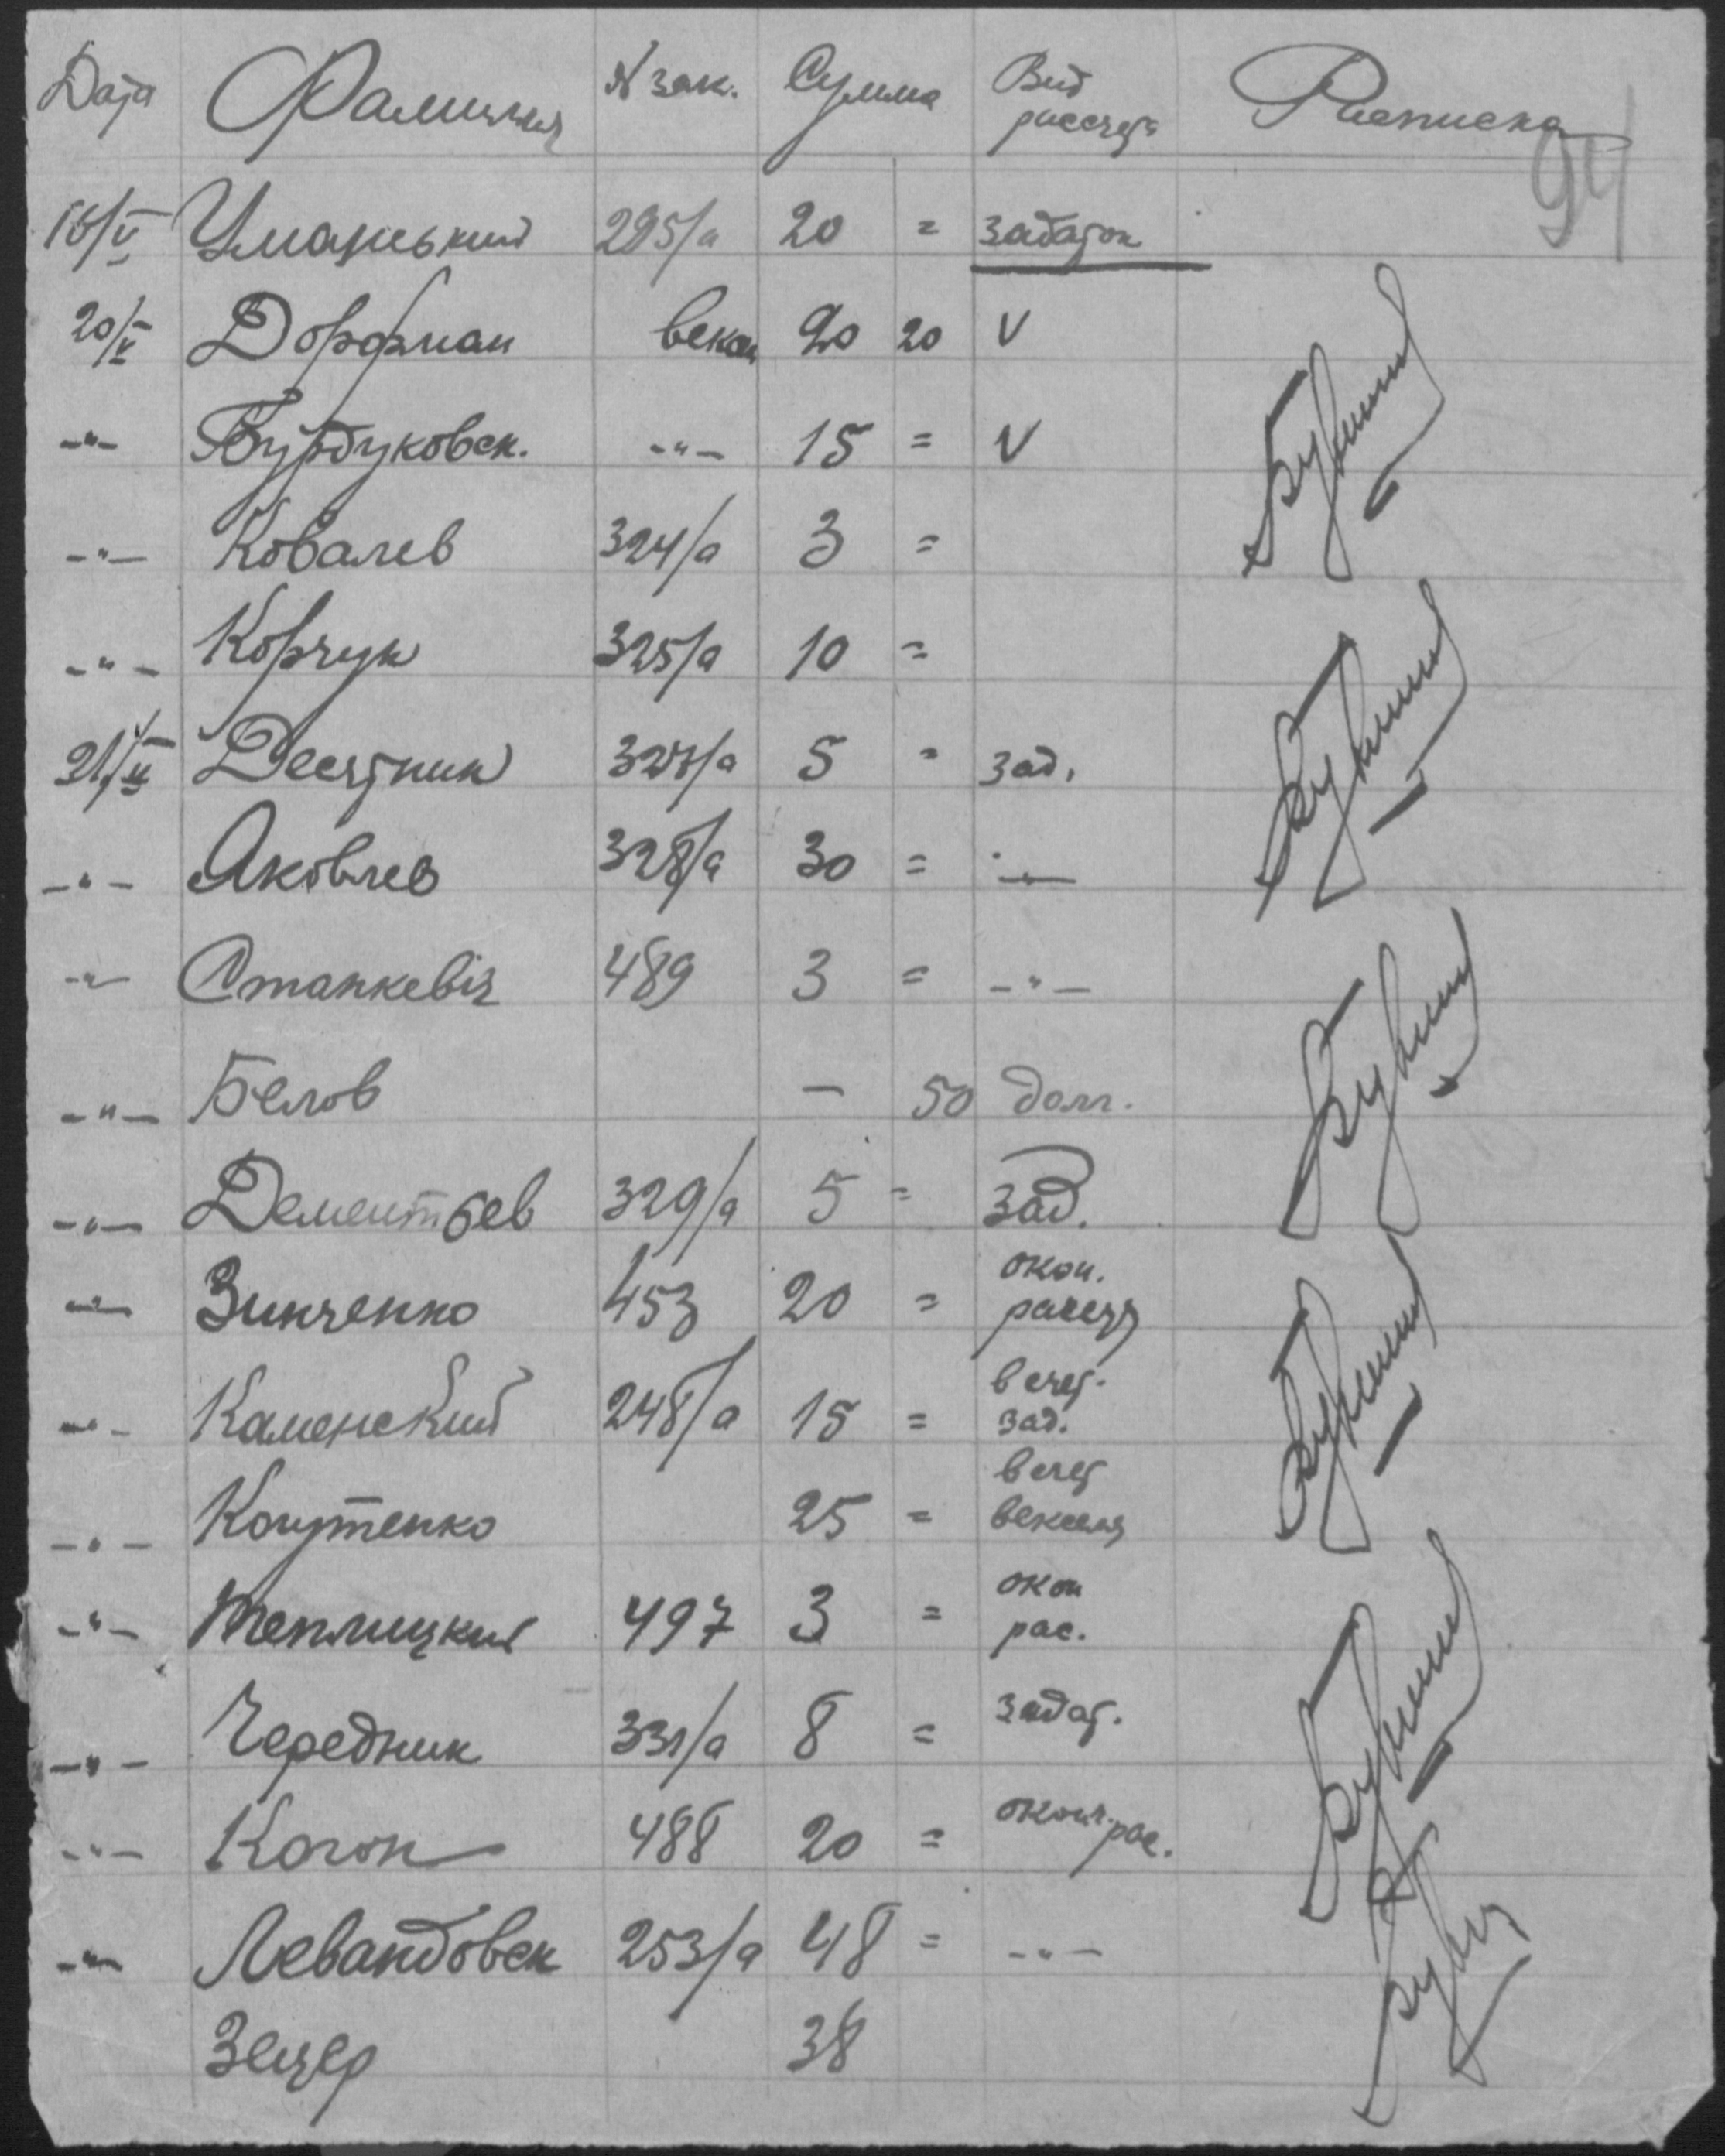 Дата Фамилия № зак. Сумма Вид рассчета Расписка
94
16/V Уманський 295/а 20 = задаток
20/V Дорфман векс. 20 20 V
-"- Бурдуковск. -"- 15 = V
-"- Ковалев 324/а 3 =
-"- Корчук 325/а 10 =
21/V Десятник 327/а 5 = зад.
-"- Яковлев 328/а 30 = -"-
-"- Станкевіч 489 3 = -"-
-"- Белов — 50 долг.
-"- Дементьев 329/а 5 = зад.
-"- Зинченко 453 20 = окон. рассч
-"- Каменский 248/а 15 = в счет. зад.
-"- Кочутенко 25 = в счет векселя
-"- Теплицкий 497 3 = окон рас.
-"- Чередник 331/а 8 = задат.
-"- Когон 488 20 = оконч. рас.
-"- Левандовск 253/а 48 = -"-
Зецер 38